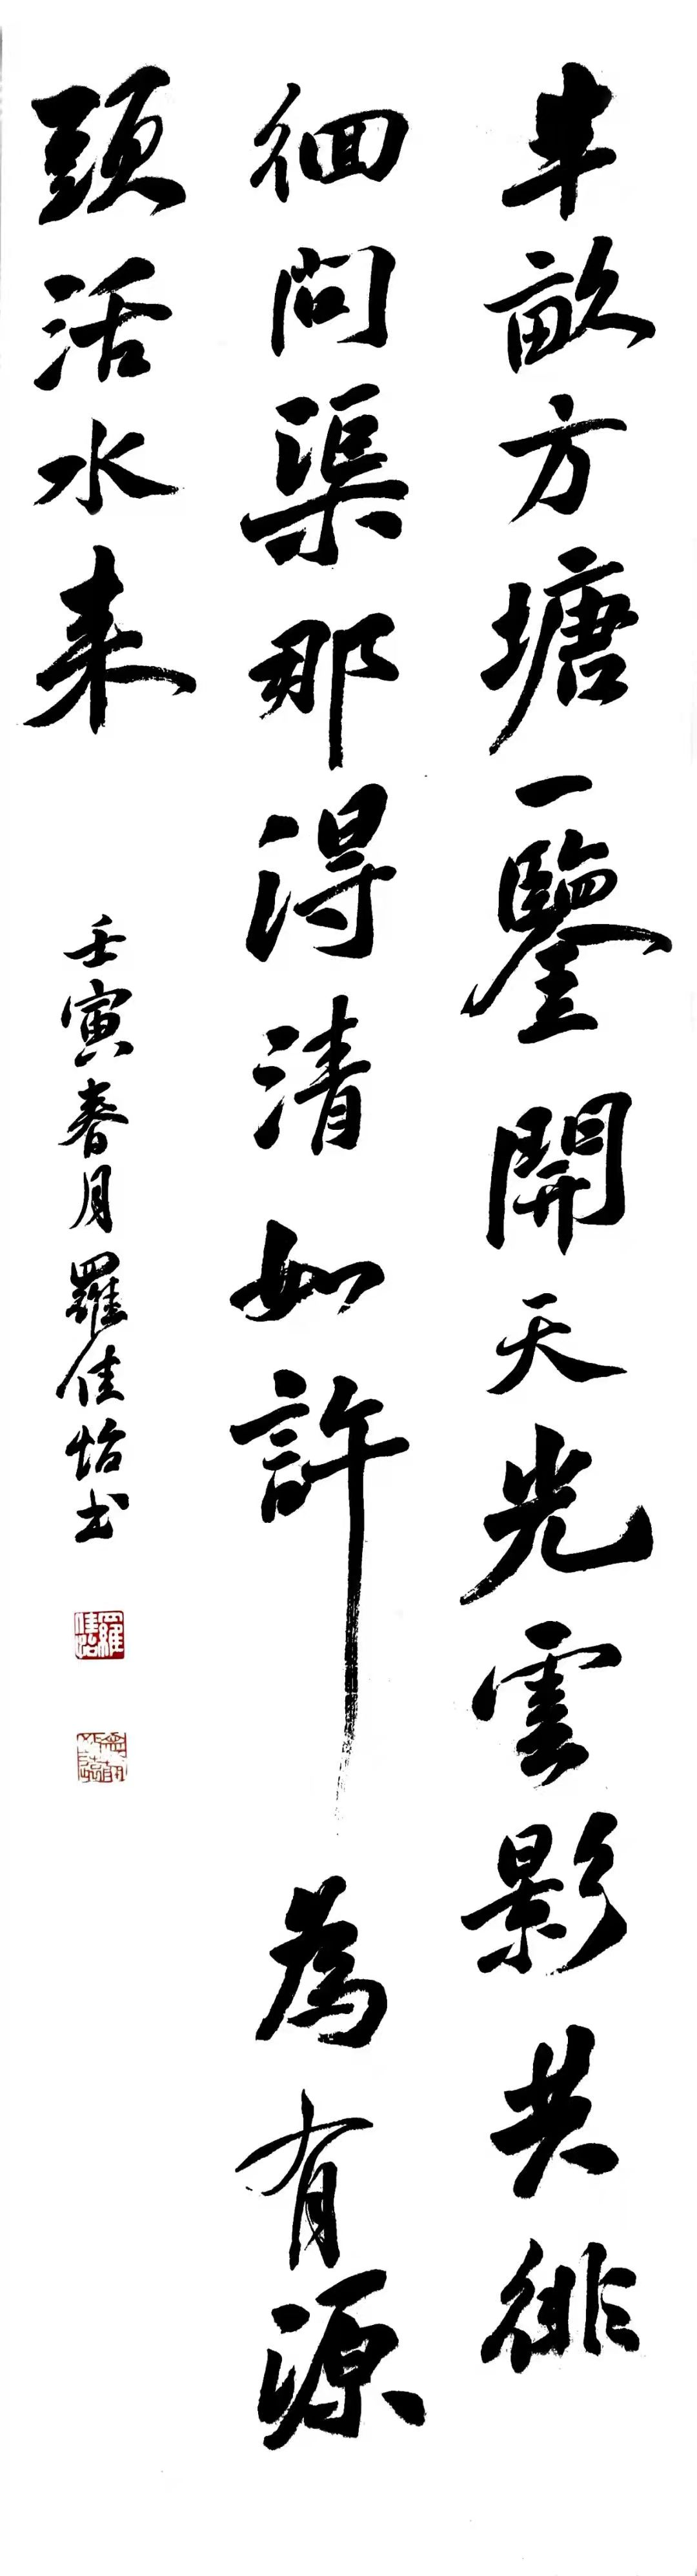 半畝方塘一鑒開天光雲影共徘
徊問渠那得清如許為有源
頭活水來
壬寅春月羅佳怡书
羅佳怡